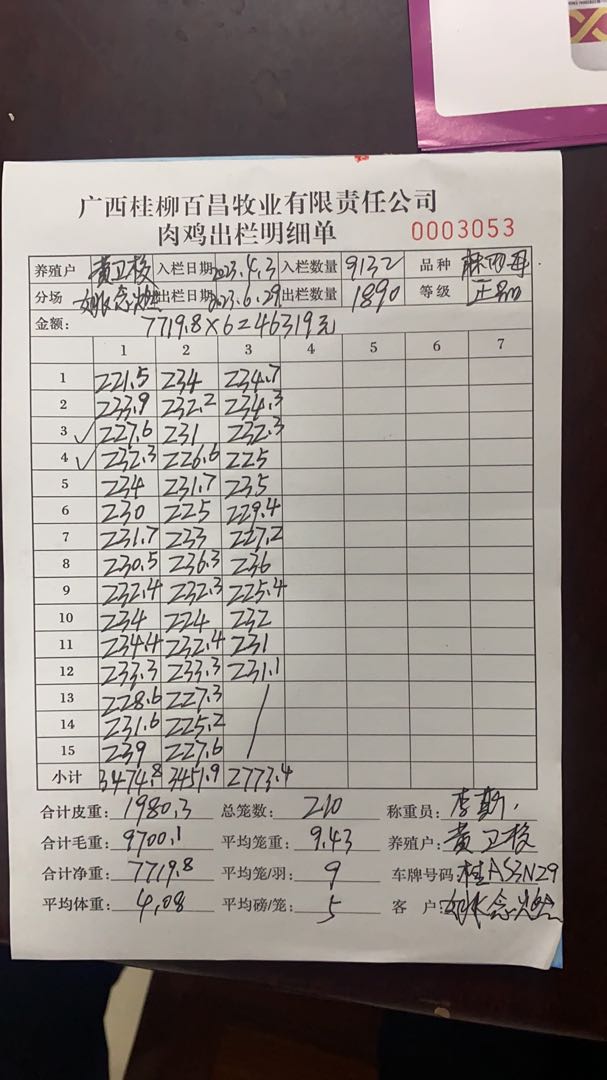 广西桂柳百昌牧业有限责任公司
肉鸡出栏明细单 0003053
养殖户 黄卫极 入栏日期 2023.4.3 入栏数量 9132 品种
分场 出栏日期 2023.6.29 出栏数量 1890 等级 正品
金额: 7719.8×6=46319元
1 2 3 4 5 6 7
1 221.5 234 234.7
2 233.9 232.2 234.3
3 227.6 231 232.3
4 232.3 226.6 225
5 234 231.7 235
6 230 225 229.4
7 231.7 233 227.2
8 230.5 236.3 236
9 232.4 232.3 225.4
10 234 224 232
11 234.4 232.4 231
12 233.3 233.3 231.1
13 228.6 227.3
14 231.6 225.2
15 239 227.6
小计 3474.8 3451.9 2773.4
合计皮重: 1980.3 总笼数: 210 称重员: 李斯
合计毛重: 9700.1 平均笼重: 9.43 养殖户: 黄卫极
合计净重: 7719.8 平均笼/羽: 9 车牌号码: 桂AS3N29
平均体重: 4.08 平均磅/笼: 5 客 户: